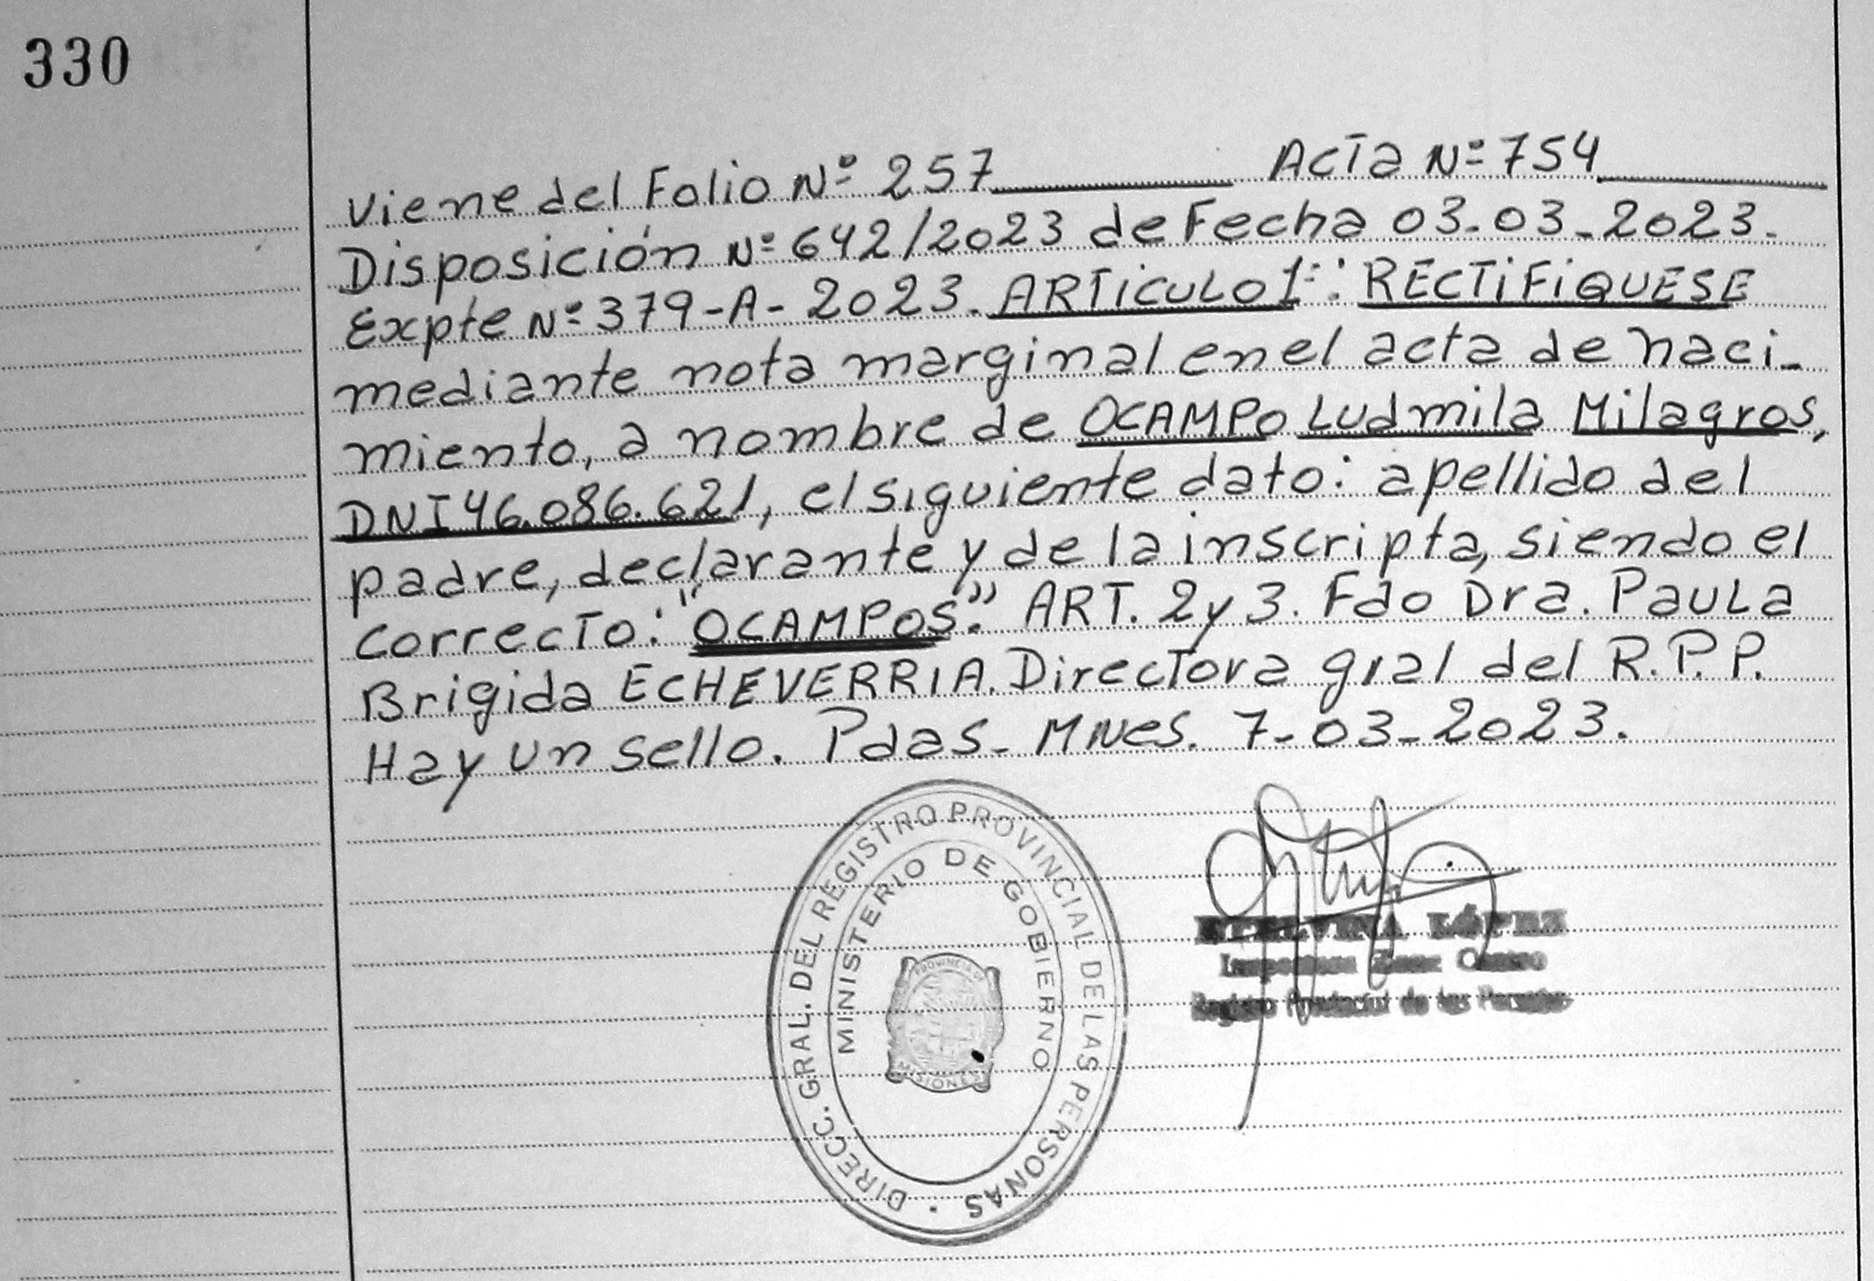 330
Viene del Folio Nº 257 Acta Nº 754
Disposición Nº 642/2023 de Fecha 03-03-2023.
Expte Nº 379-A-2023. ARTICULO 1º: RECTIFIQUESE
mediante nota marginal en el acta de naci-
miento, a nombre de OCAMPO Ludmila Milagros,
DNI 46.086.621, el siguiente dato: apellido del
padre, declarante y de la inscripta, siendo el
correcto: "OCAMPOS". ART. 2 y 3. Fdo Dra. Paula
Brigida ECHEVERRIA. Directora gral del R.P.P.
Hay un sello. Pdas. Mnes. 7-03-2023.
DIRECC. GRAL. DEL REGISTRO PROVINCIAL DE LAS PERSONAS
MINISTERIO DE GOBIERNO
PROVINCIA DE
MISIONES
LÓPEZ
Registro Provincial de las Personas